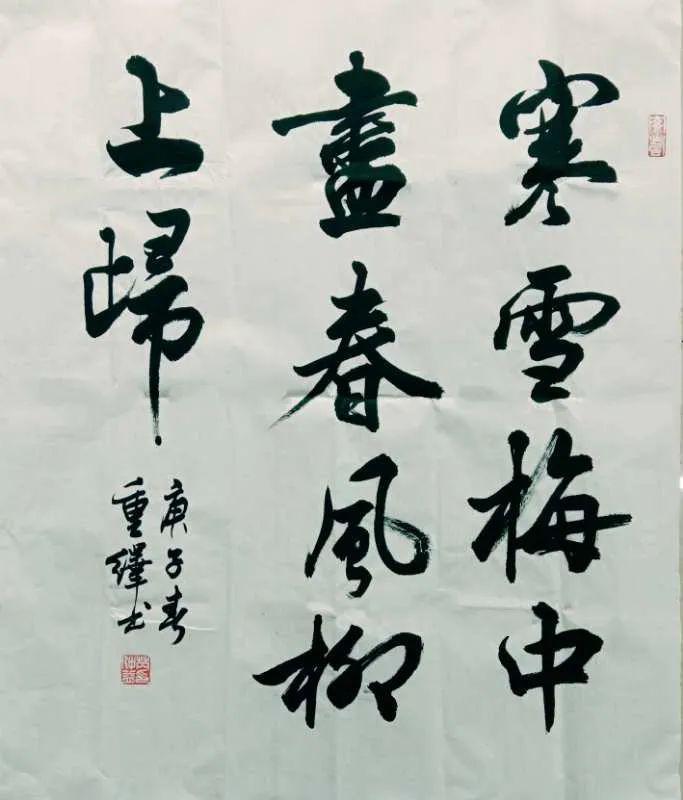 寒雪梅中
盡春風柳
上歸
庚子春
重繹书